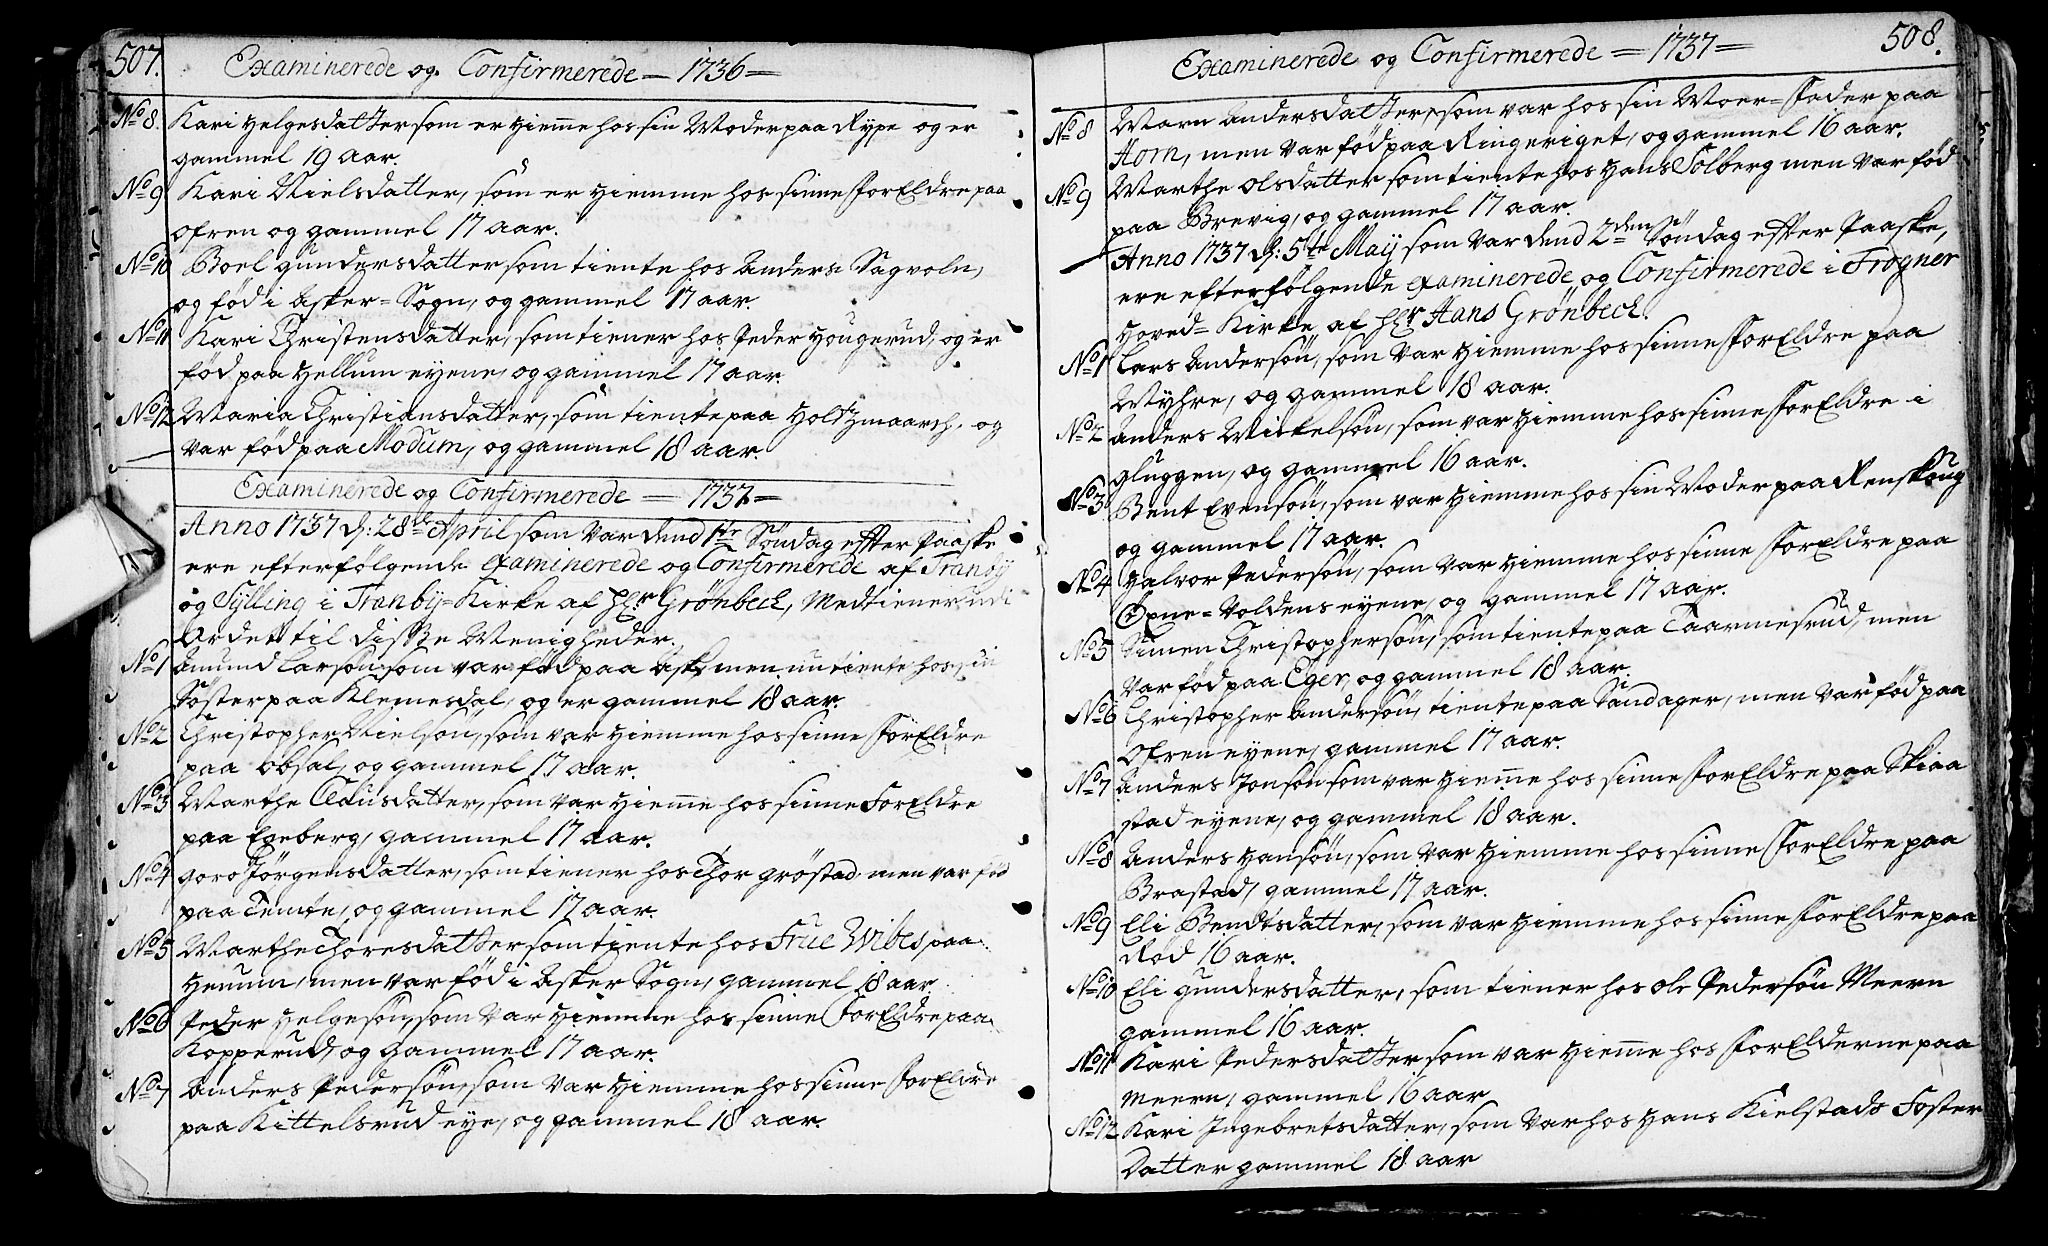 507.
Examinerede og Confirmerede — 1736 —
No 8. Kari Helgesdatter som er hieme hos sin Moder paa Rype og er
gammel 19 aar.
No 9 Kari Nielsdatter, som er hiemme hos sinne ForEldre paa
Ofren og gammel 17 aar.
No 10 Boel Gundersdatter som tiente hos Anders Sagvoln,
og fød i Asker-Sogn, og gammel 17 aar.
No 11 Kari Christensdatter, som tiener hos Peder Hougerud, og er
fød paa Hellum eyene, og gammel 17 aar.
No 12 Maria Christiansdatter, som tiente paa Holtzmaarch, og
var fød paa Modum, og gammel 18 aar.
Examinerede og Confirmerede — 1737 —
Anno 1737 d: 28de April som var dend 1te Søndag effter Paaske
ere efterfølgende examinerede og Confirmerede af Tranby
og Sylling i Tranby-Kirke af Hr Grønbeck, Medtiener udi
Ordet til disse Menigheder.
No 1 Amund Larsøn som var fød paa Ask, men nu tiente hos sin
Søster paa Klemesdal, og er gammel 18 aar.
No 2 Christopher Nielsøn, som var hiemme hos sinne ForEldre
paa Obsal, og gammel 17 aar.
No 3 Marthe Clausdatter, som var hieme hos sinne ForEldre
paa Egeberg, gammel 17 aar.
No 4 Goro Jørgensdatter, som tiener hos Thor Grøstad men var fød
paa Temte, og gammel 17 aar.
No 5 Marthe Thoresdatter som tiente hos Frue Wibes paa
Heuum, men var fød i Asker Sogn, gammel 18 aar.
No 6 Peder Helgesøn, som var hiemme hos sinne ForEldre paa
Kopperud, og gammel 17 aar.
No 7 Anders Pedersøn, som var hiemme hos sinne ForEldre
paa Kittelsrud eye, og gammel 18 aar.
508.
Examinerede og Confirmerede — 1737 —
No 8 Maren Andersdatter, som var hos sin Moer-Fader paa
Horn, men var fød paa Ringeriget, og gammel 16 aar.
No 9 Marthe Olsdatter som tiente hos Hans Solberg men var fød
paa Brevig, og gammel 17 aar.
Anno 1737 d: 5te May som var dend 2den Søndag effter Paaske,
ere efterfølgende examinerede og Confirmerede i Frogner
Hoved-Kirke af Hr Hans Grønbeck.
No 1 Lars Andersøn, som var hiemme hos sinne ForEldre paa
Myhre, og gammel 18 aar.
No 2 Anders Mickelsøn, som var hiemme hos sinne ForEldre i
Gluggen, og gammel 16 aar.
No 3 Bent Evensøn, som var hiemme hos sin Moder paa Renskoug
og gammel 17 aar.
No 4 Halvor Pedersøn, som var hiemme hos sinne ForEldre paa
Opne-Voldens eyene, og gammel 17 aar.
No 5 Simen Christophersøn, som tiente paa Taarmesrud, men
var fød paa Eger, og gammel 18 aar.
No 6 Christopher Andersøn, tiente paa Sandager, men var fød paa
Ofren eyene, gammel 17 aar.
No 7 Anders Jonsøn som var hieme hos sinne ForEldre paa Skiaa
stad eyene, og gammel 18 aar.
No 8 Anders Hansøn, som var hiemme hos sinne ForEldre paa
Brastad, gammel 17 aar.
No 9 Eli Bendtsdatter, som var hiemme hos sinne ForEldre paa
Rød 16 aar.
No 10 Eli Gundersdatter, som tiener hos Ole Pedersøn Meern
gammel 16 aar.
No 11 Kari Pedersdatter som var hieme hos ForElderne paa
Meern, gammel 16 aar
No 12 Kari Ingebretsdatter, som var hos Hans Kielstads Foster
Datter gammel 18 aar